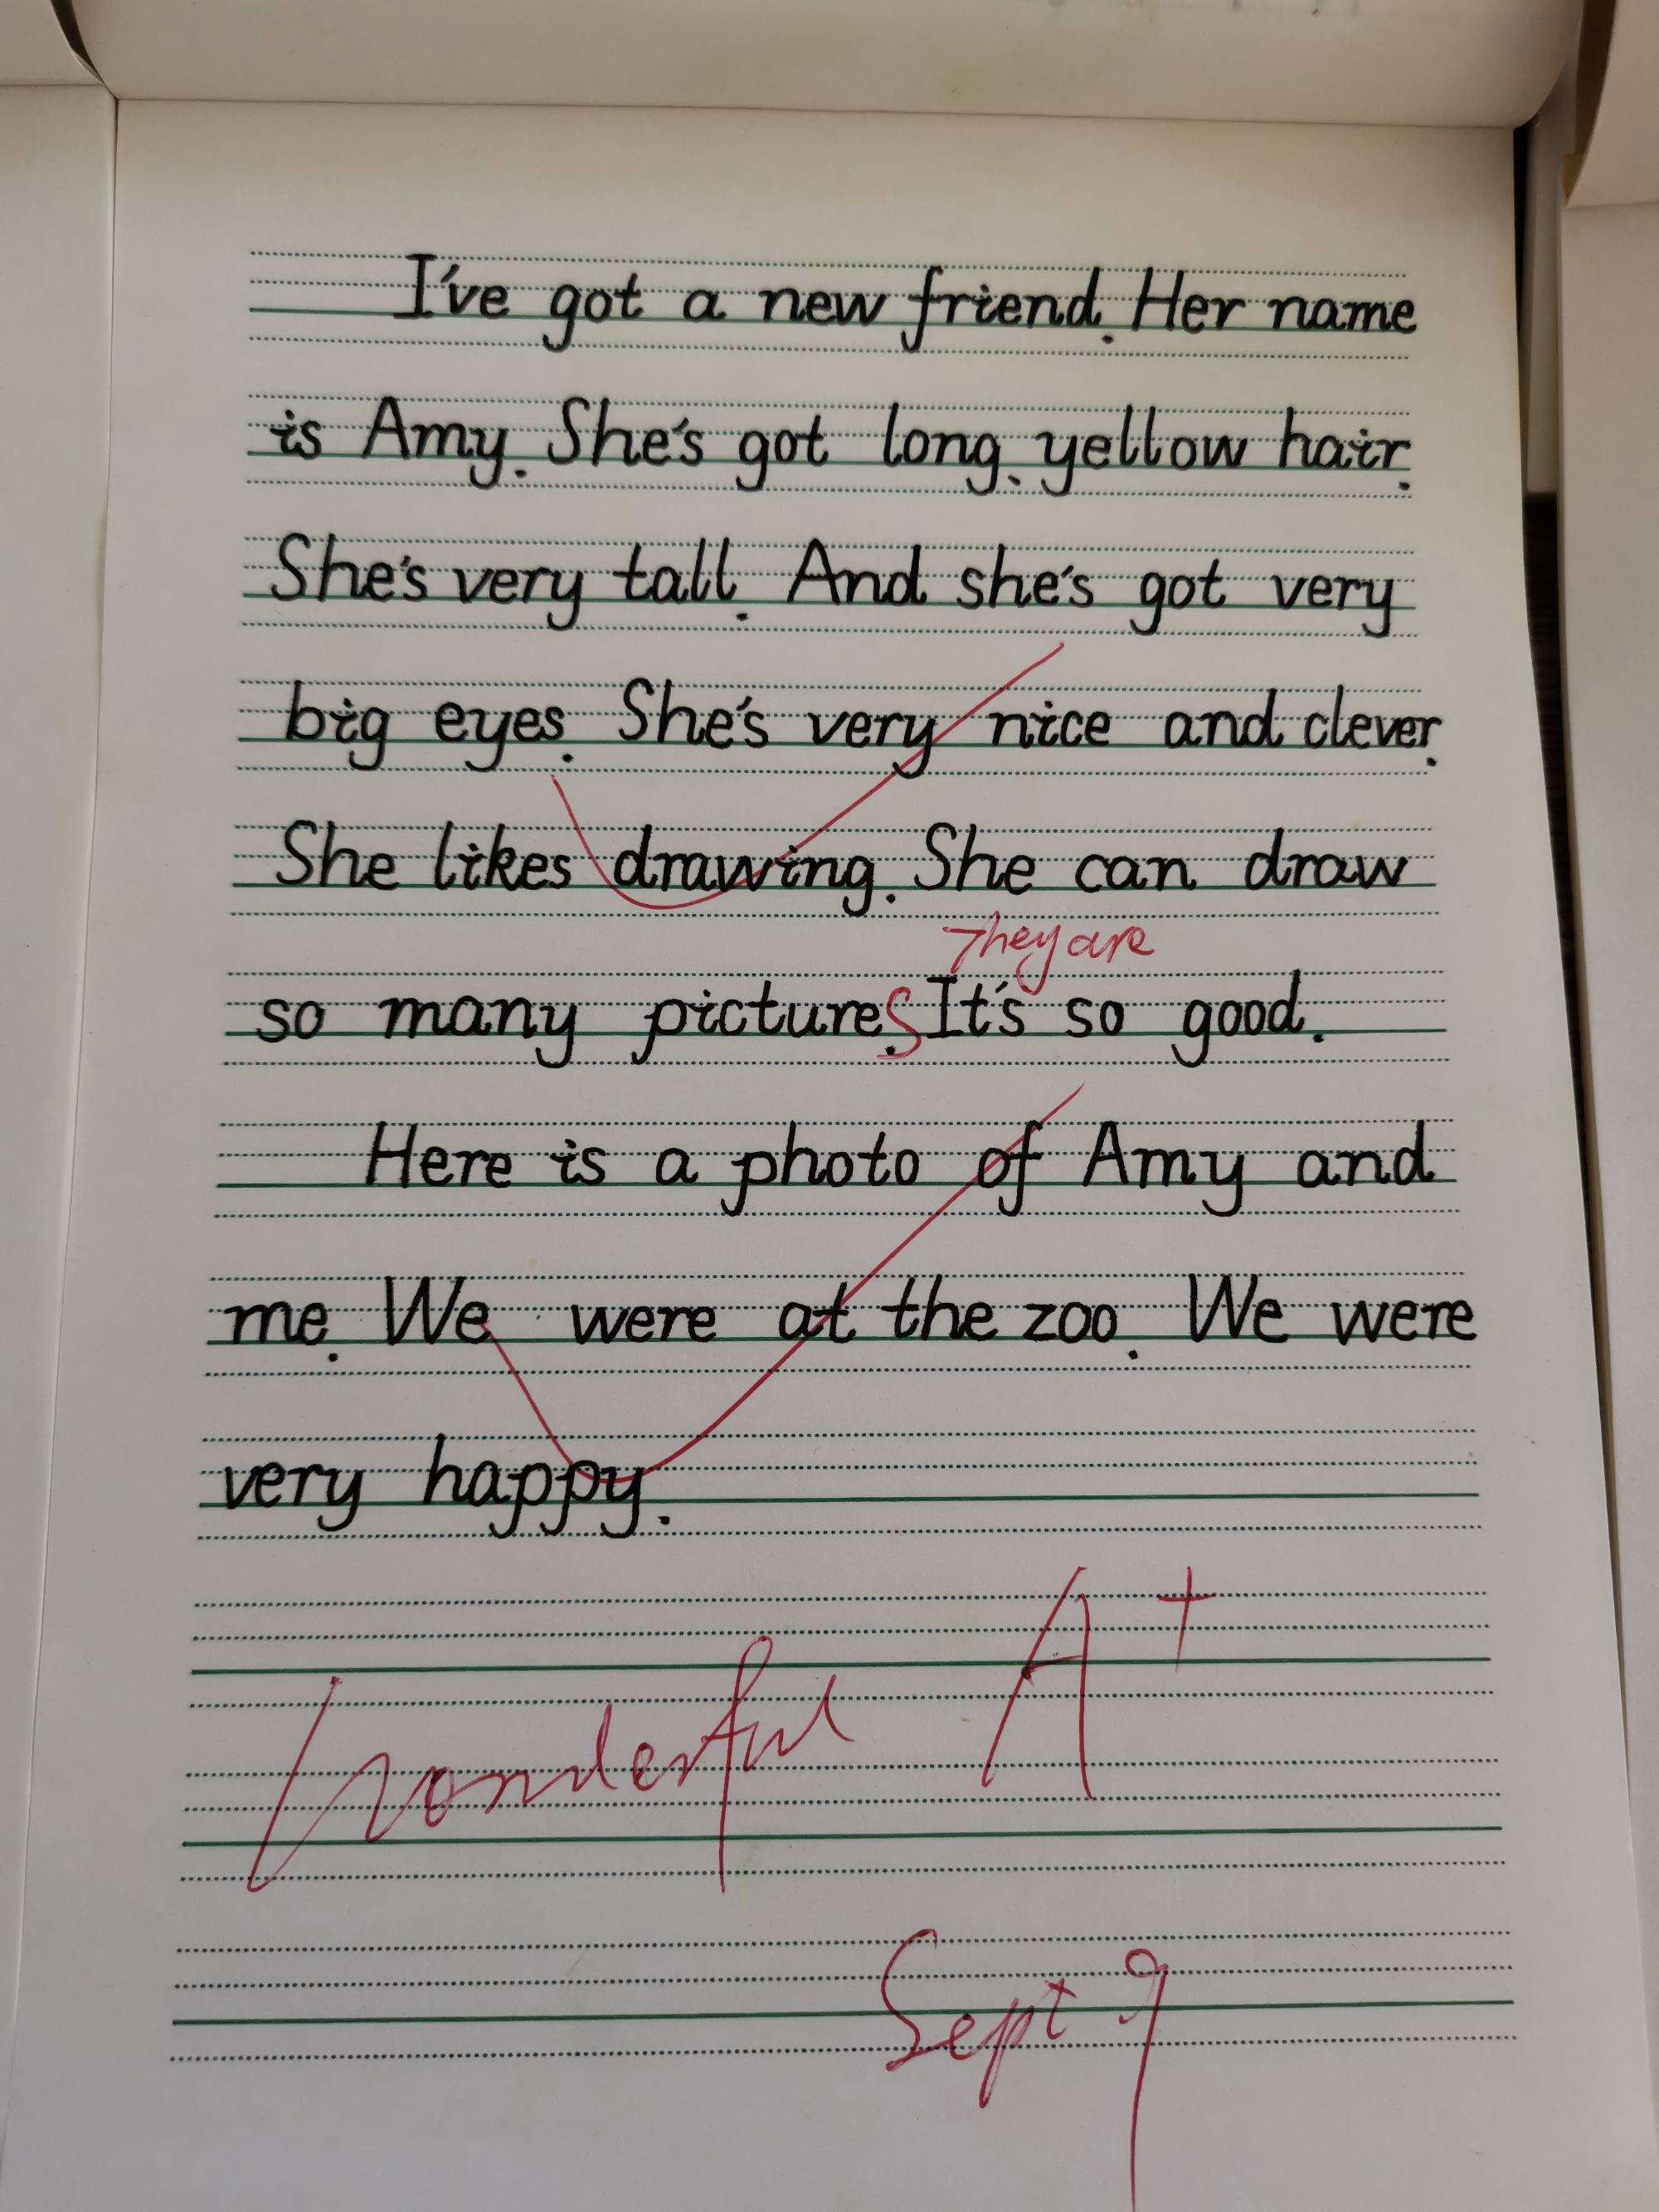 I've got a new friend. Her name
is Amy. She's got long, yellow hair.
She's very tall. And she's got very
big eyes. She's very nice and clever.
She likes drawing. She can draw
They are
so many pictures. It's so good.
Here is a photo of Amy and
me. We were at the zoo. We were
very happy.
Wonderful A+
Sept 9